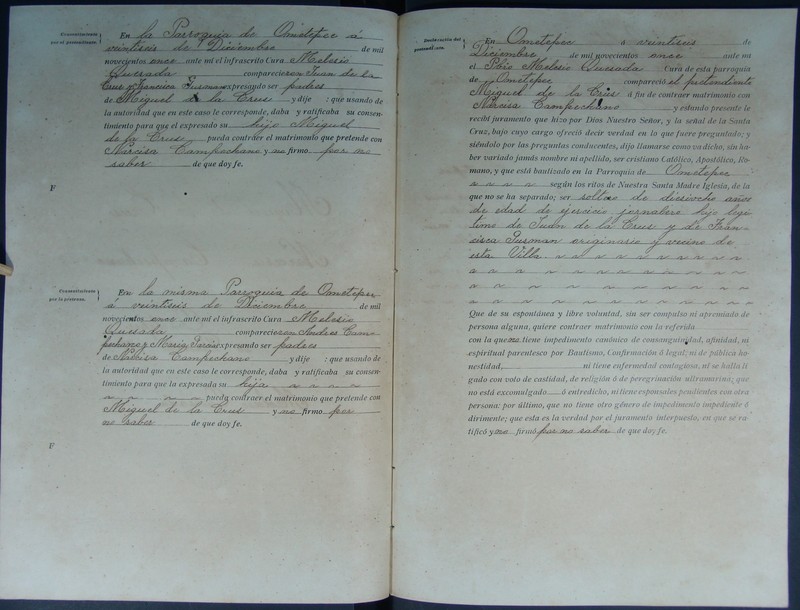 Consentimiento
por el pretendiente.
En la Parroquia de Ometepec á
veintiseis de Diciembre de mil
novecientos once ante mí el infrascrito Cura Melesio
Quesada comparecieron Juan de la
Cruz y Francisca Gusman expresando ser padres
de Miguel de la Crus y dije : que usando de
la autoridad que en este caso le corresponde, daba y ratificaba su consen-
timiento para que el expresado su hijo Miguel
de la Crus pueda contraer el matrimonio que pretende con
Narcisa Campechano y no firmo por no
saber de que doy fe.
F
Consentimiento
por la pretensa.
En la misma Parroquia de Ometepec
á veintiseis de Diciembre de mil
novecientos once ante mí el infrascrito Cura Melesio
Quesada comparecieron Andres Cam-
pechano y Maria expresando ser padres
de Narcisa Campechano y dije : que usando de
la autoridad que en este caso le corresponde, daba y ratificaba su consen-
timiento para que la expresada su hija
pueda contraer el matrimonio que pretende con
Miguel de la Crus y no firmo por
no saber de que doy fe.
F
Declaración del
pretendiente.
En Ometepec á veintiseis de
Diciembre de mil novecientos once ante mí
el Pbro Melesio Quesada Cura de esta parroquia
de Ometepec compareció el pretendiente
Miguel de la Crus á fin de contraer matrimonio con
Narcisa Campechano y estando presente le
recibí juramento que hizo por Dios Nuestro Señor, y la señal de la Santa
Cruz, bajo cuyo cargo ofreció decir verdad en lo que fuere preguntado; y
siéndolo por las preguntas conducentes, dijo llamarse como va dicho, sin ha-
ber variado jamás nombre ni apellido, ser cristiano Católico, Apostólico, Ro-
mano, y que está bautizado en la Parroquia de Ometepec
según los ritos de Nuestra Santa Madre Iglesia, de la
que no se ha separado; ser soltero de diesiocho años
de edad de ejercicio jornalero hijo legi-
timo de Juan de la Crus y de Fran-
cisca Gusman originario y vecino de
esta Villa
Que de su espontánea y libre voluntad, sin ser compulso ni apremiado de
persona alguna, quiere contraer matrimonio con la referida
con la que no tiene impedimento canónico de consanguinidad, afinidad, ni
espiritual parentesco por Bautismo, Confirmación ó legal; ni de pública ho-
nestidad ni tiene enfermedad contagiosa, ni se halla li
gado con voto de castidad, de religión ó de peregrinación ultramarina; que
no está excomulgado ó entredicho, ni tiene esponsales pendientes con otra
persona: por último, que no tiene otro género de impedimento impediente ó
dirimente; que esta es la verdad por el juramento interpuesto, en que se ra-
tificó y no firmó por no saber de que doy fe.